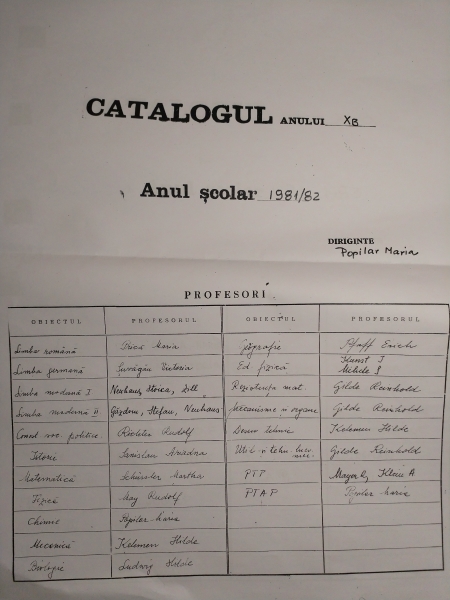 CATALOGUL ANULUI XB
Anul școlar 1981/82
DIRIGINTE
Popilar Maria
PROFESORI
OBIECTUL PROFESORUL OBIECTUL PROFESORUL
Limba română Maria Geografie Pfaff Erich
Limba germană Victoria Ed. fizică Kunst I
Limba modernă I Neuhaus, Stoica, Zill Rezistența mat. Gilde Reinhold
Limba modernă II Stefan, Neuhaus Mecanisme o organe Gilde Reinhold
Rudolf Desen tehnic Kelemen Hilde
Istorie Stanislav Ariadna Gilde Reinhold
Matematică Schüssler Martha PTP Klein A
Fizică May Rudolf PTAP Maria
Chimie Maria
Mecanică Kelemen Hilde
Biologie Ludwig Hilde